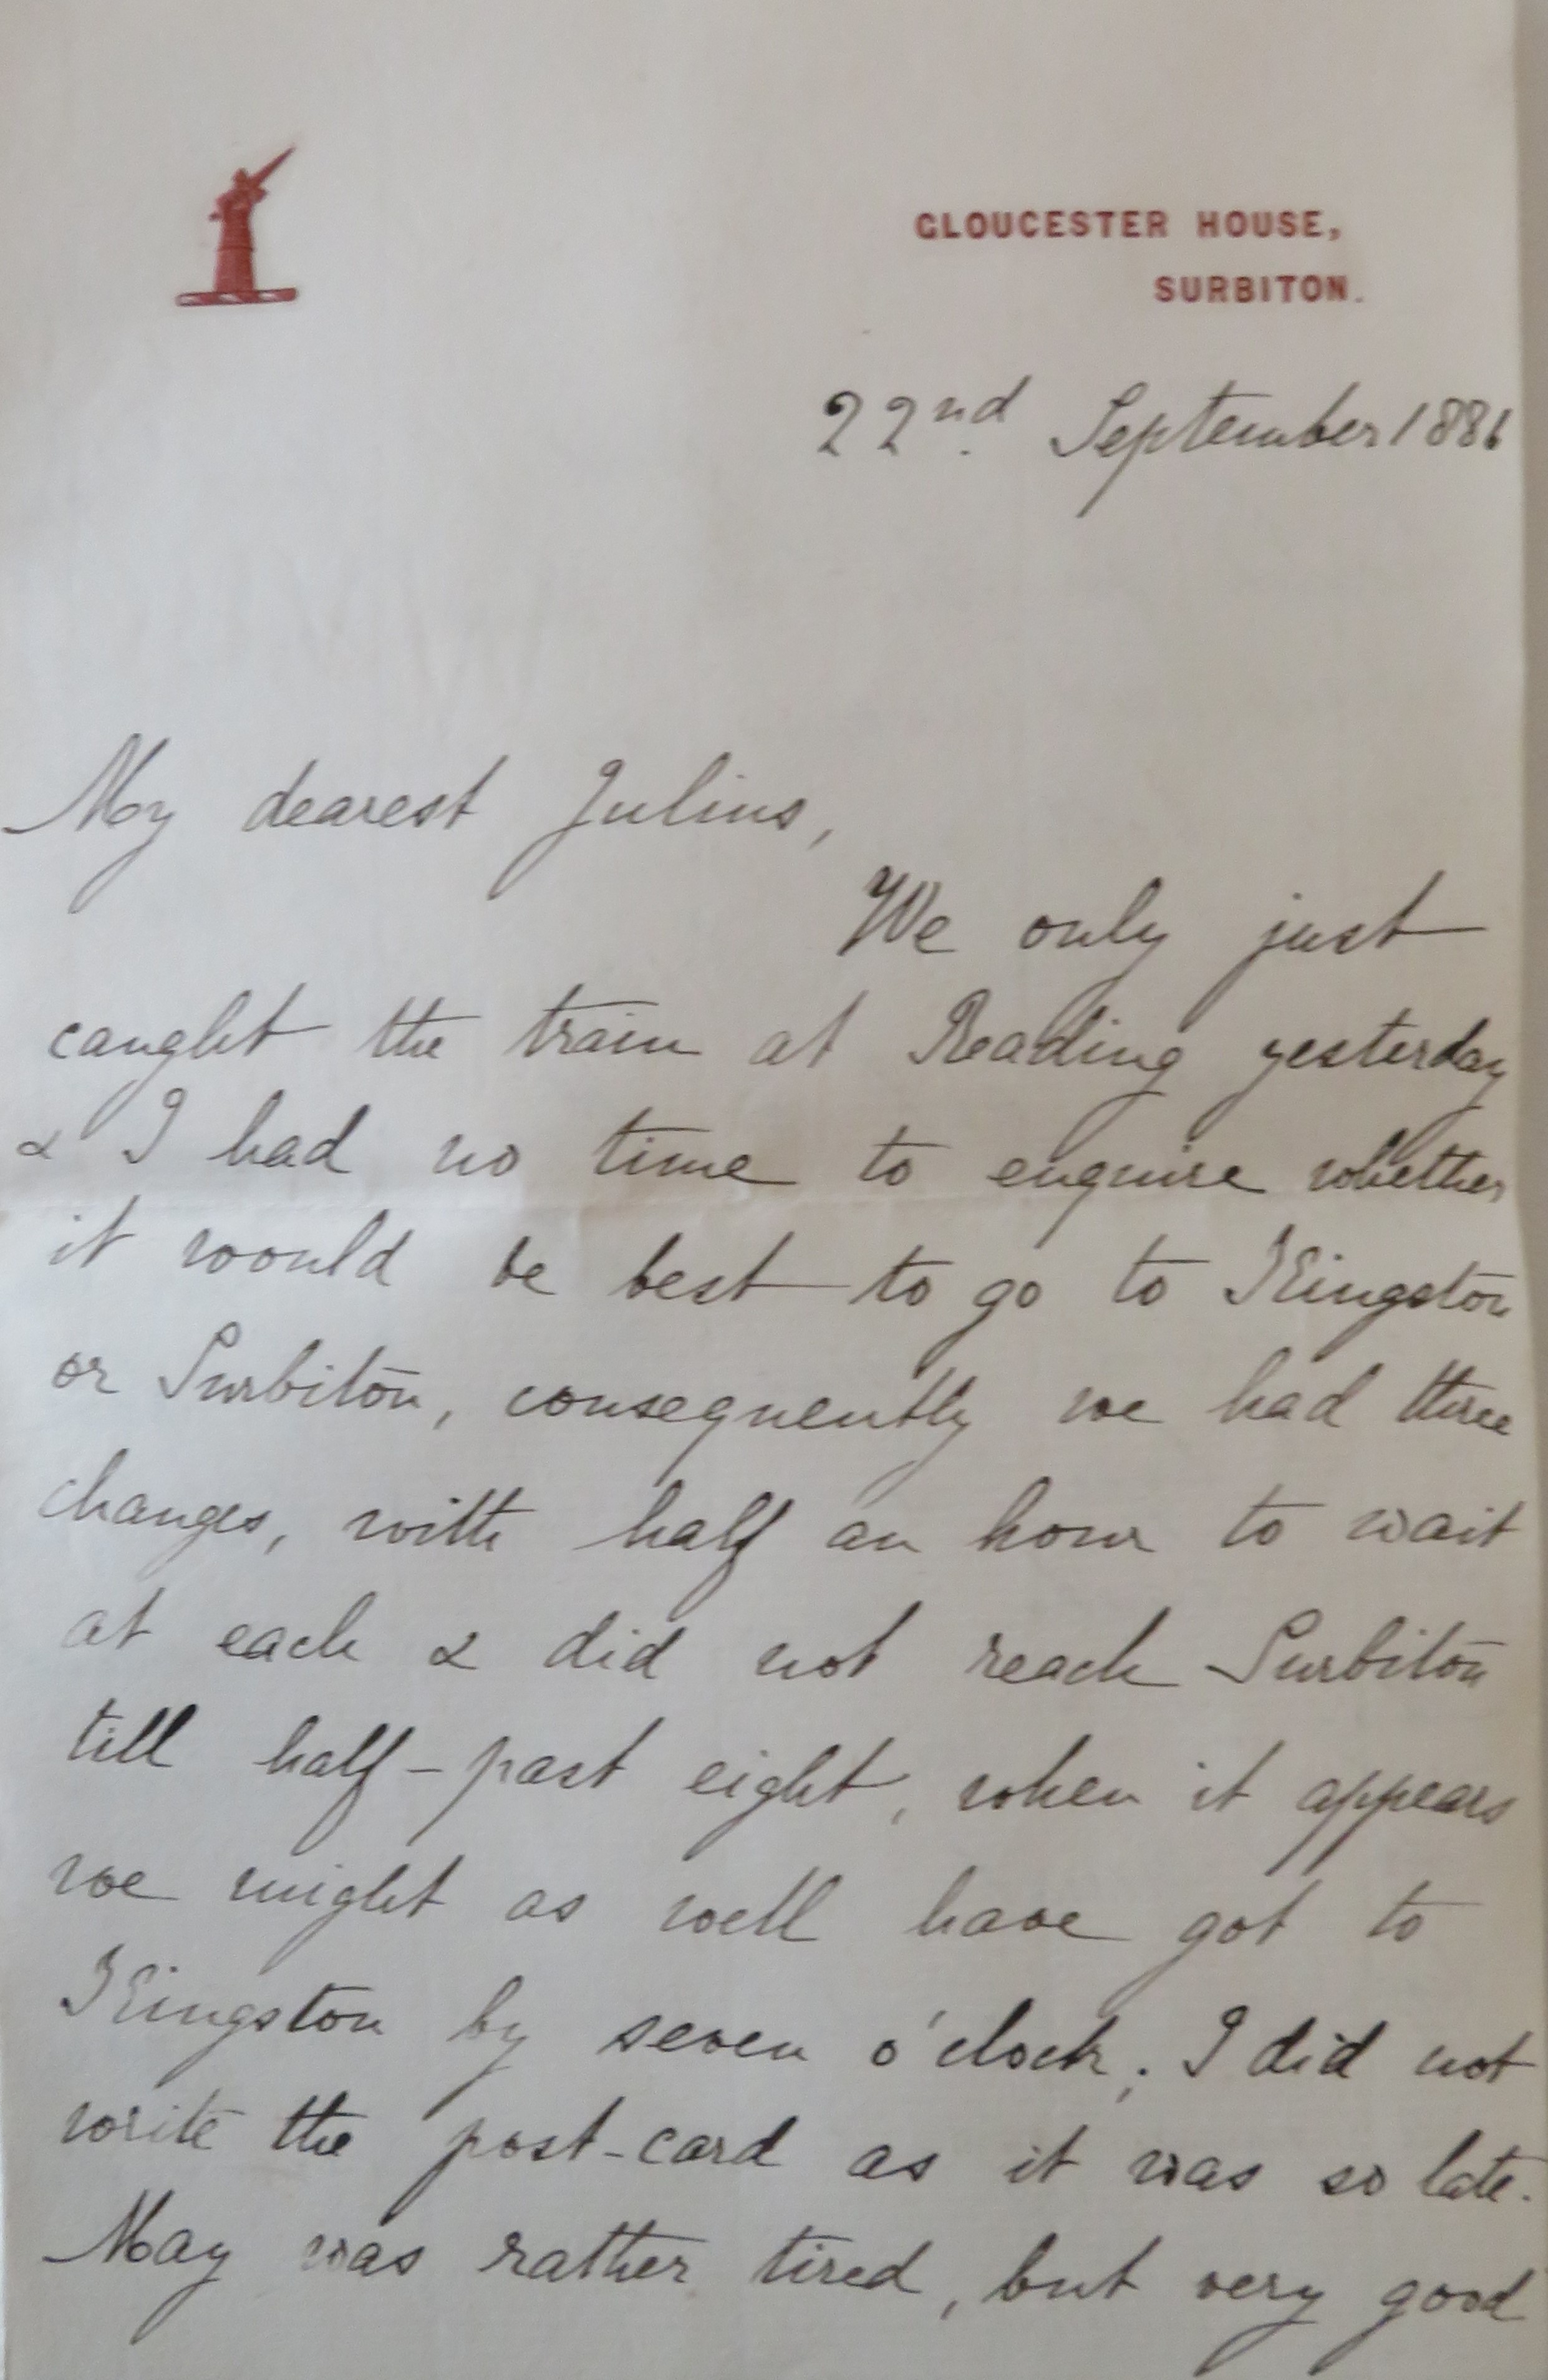 GLOUCESTER HOUSE,
SURBITON.
22nd. September 1886
My dearest Julius,
We only just
caught the train at Reading yesterday
& I had no time to enquire whether
it would be best to go to Kingston
or Surbiton, consequently we had three
changes, with half an hour to wait
at each & did not reach Surbiton
till half-past eight, when it appears
we might as well have got to
Kingston by seven o'clock; I did not
write the post-card as it was so late.
May was rather tired, but very good